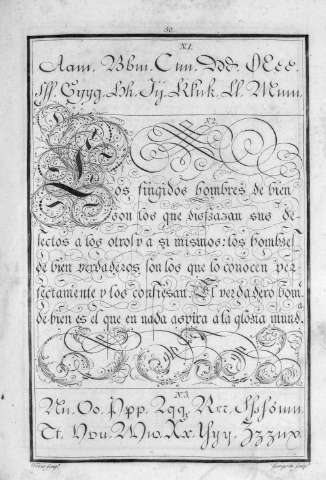 30.
X1.
Aam. Bbm. Cm. Ddd. Eee.
fff. Gygg. hk. Jj. Kkuk. Ll. Mum.
X2.
Los fingidos hombres de bien
son los que disfrazan sus de-
fectos a los otros y a si mismos: los hombres
de bien verdaderos son los que lo conocen per-
fectamente y los confiesan. El verdadero hom.
de bien es el que en nada aspira a la gloria mund.a
X3.
Nn. Oo. Ppp. Qqq. Rrr. Sssssmn.
Tt. Vvu. Ww. Xx. Yyy. Zzzux.